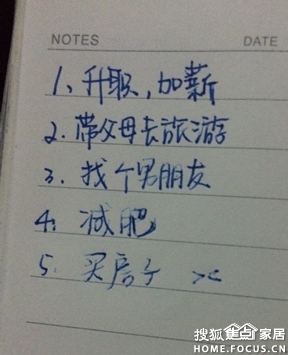 NOTES DATE
1、升职,加薪
2.带父母去旅游
3.找个男朋友
4.减肥
5.买房子
搜狐焦点家居
HOME.FOCUS.CN